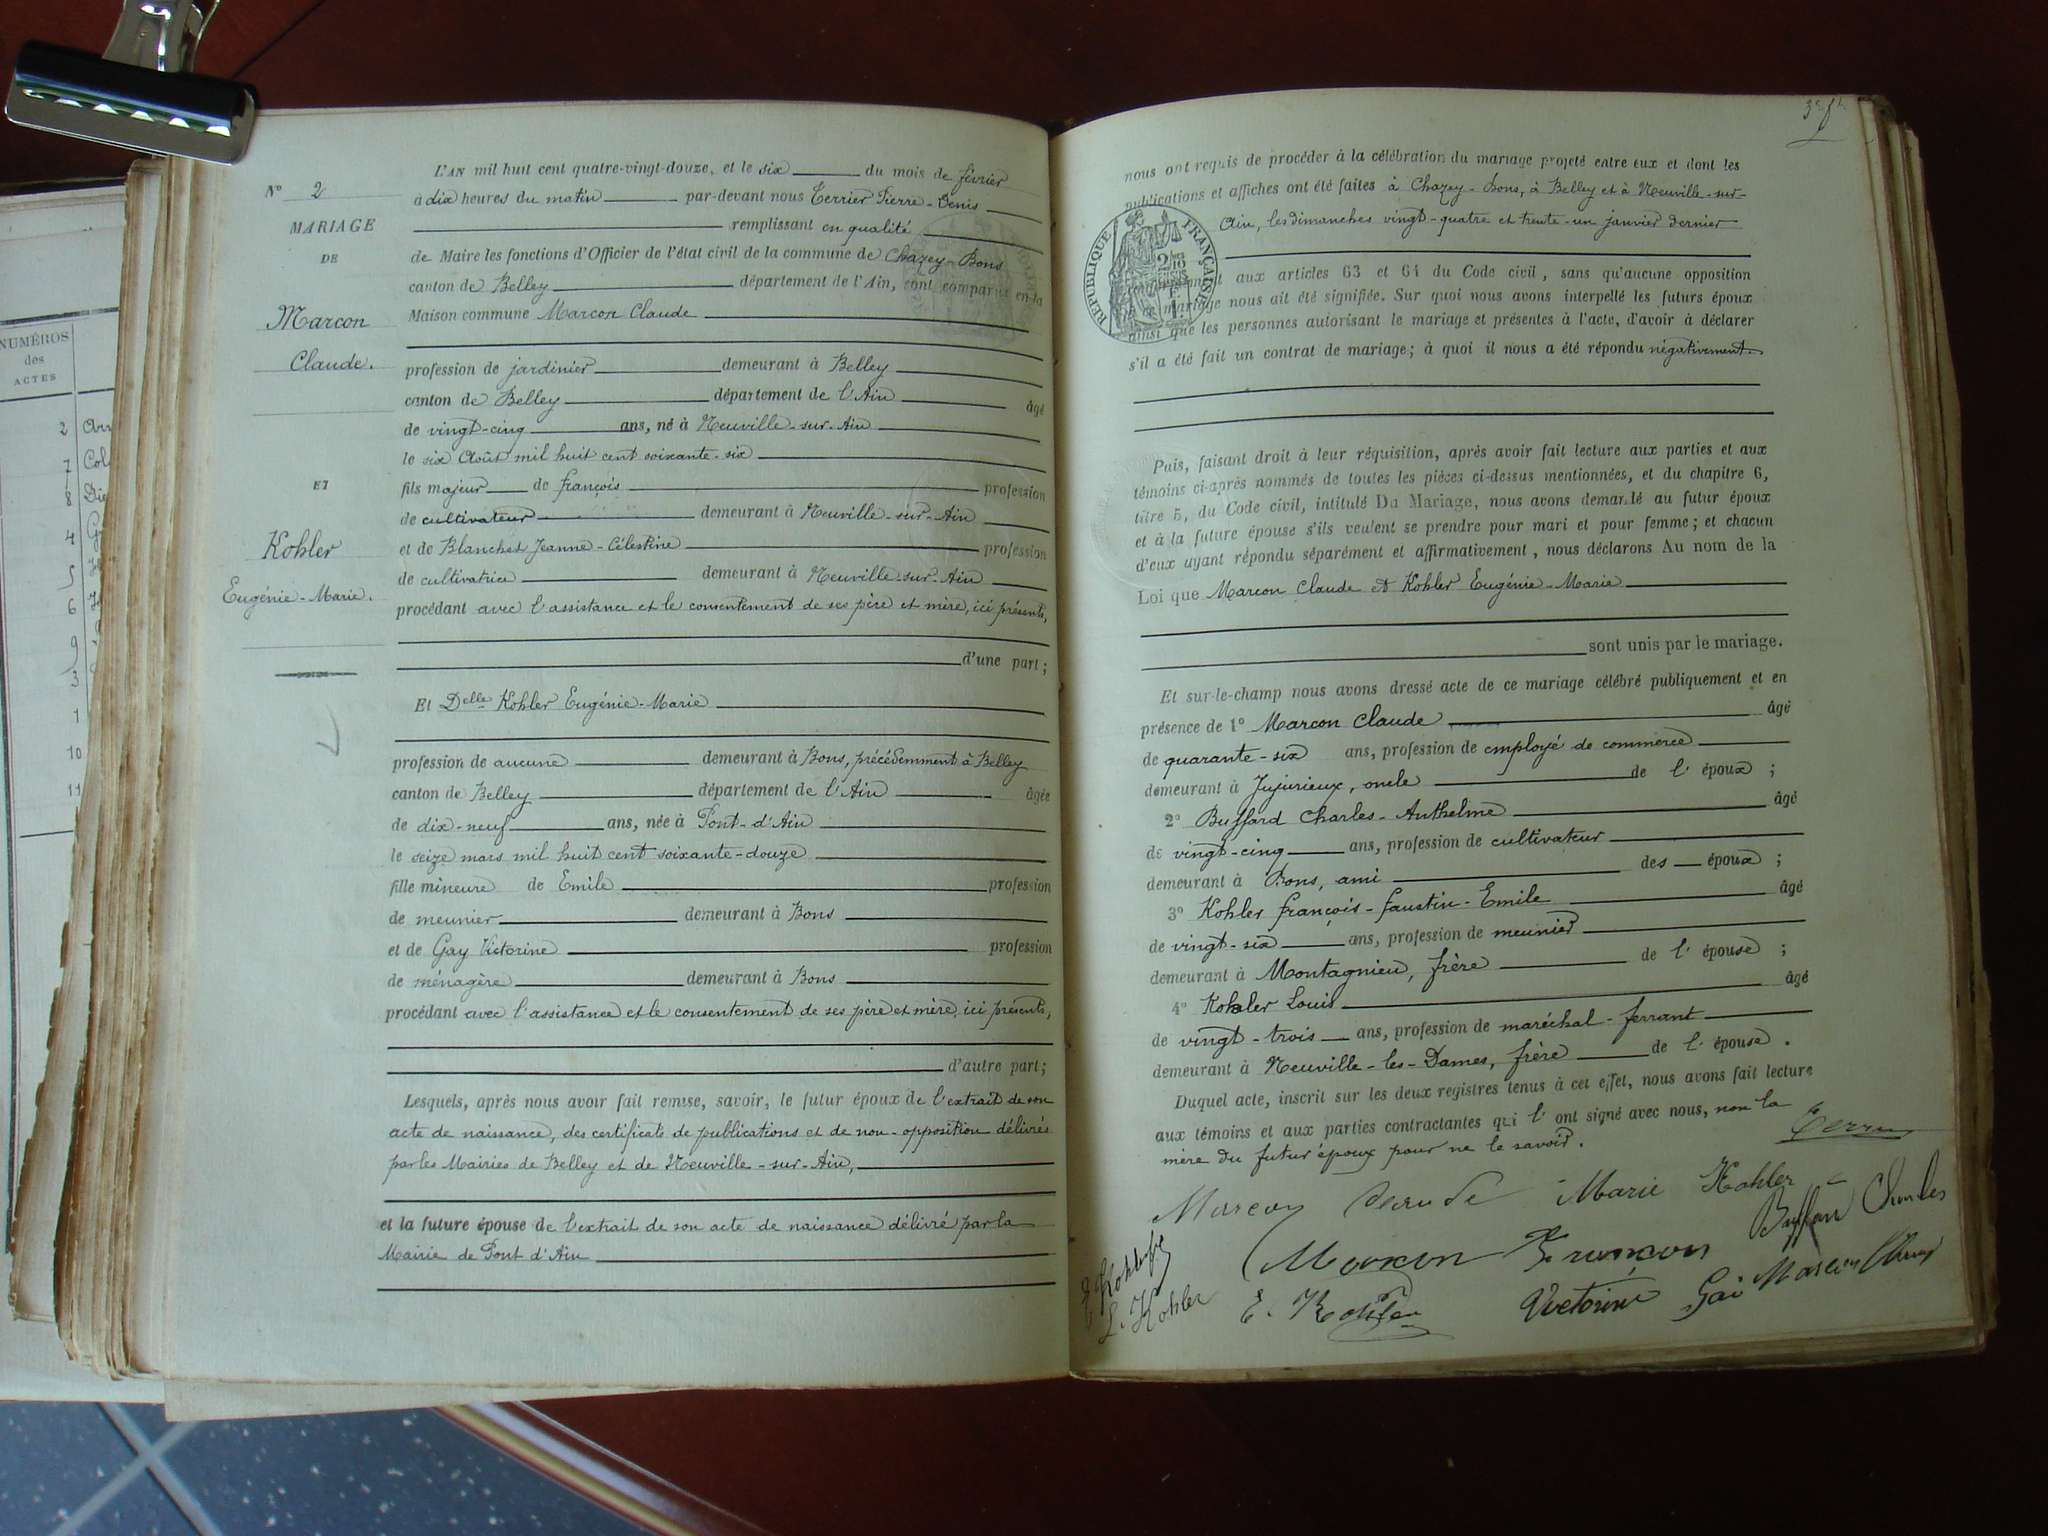 NUMÉROS
des
ACTES
2
7
8
4
5
6
9
3
1
10
11
N° 2
MARIAGE
DE
Marcon
Claude.
ET
Kohler
Eugénie-Marie.
L'AN mil huit cent quatre-vingt-douze, et le six du mois de février
à dix heures du matin par-devant nous Terrier Pierre-Denis
remplissant en qualité
de Maire les fonctions d'Officier de l'état civil de la commune de Chazey-Bons
canton de Belley département de l'Ain, sont comparus en la
Maison commune Marcon Claude
profession de jardinier demeurant à Belley
canton de Belley département de l'Ain âgé
de vingt-cinq ans, né à Neuville-sur-Ain
le six Août mil huit cent soixante-six
fils majeur de françois profession
de cultivateur demeurant à Neuville-sur-Ain
et de Blanchet Jeanne-Célestine profession
de cultivatrice demeurant à Neuville-sur-Ain
procédant avec l'assistance et le consentement de ses père et mère, ici présents,
d'une part ;
Et Delle Kohler Eugénie-Marie
profession de aucune demeurant à Bons, précédemment à Belley
canton de Belley département de l'Ain âgée
de dix-neuf ans, née à Pont-d'Ain
le seize mars mil huit cent soixante-douze
fille mineure de Emile profession
de meunier demeurant à Bons
et de Gay Victorine profession
de ménagère demeurant à Bons
procédant avec l'assistance et le consentement de ses père et mère, ici présents,
d'autre part ;
Lesquels, après nous avoir fait remise, savoir, le futur époux de l'extrait de son
acte de naissance, des certificats de publications et de non-opposition délivrés
par les Mairies de Belley et de Neuville-sur-Ain,
et la future épouse de l'extrait de son acte de naissance délivré par la
Mairie de Pont d'Ain
nous ont requis de procéder à la célébration du mariage projeté entre eux et dont les
publications et affiches ont été faites à Chazey-Bons, à Belley et à Neuville-sur-
Ain, les dimanches vingt-quatre et trente-un janvier dernier
RÉPUBLIQUE FRANÇAISE
aux articles 63 et 64 du Code civil, sans qu'aucune opposition
mariage nous ait été signifiée. Sur quoi nous avons interpellé les futurs époux
ainsi que les personnes autorisant le mariage et présentes à l'acte, d'avoir à déclarer
s'il a été fait un contrat de mariage ; à quoi il nous a été répondu négativement.
Puis, faisant droit à leur réquisition, après avoir fait lecture aux parties et aux
témoins ci-après nommés de toutes les pièces ci-dessus mentionnées, et du chapitre 6,
titre 5, du Code civil, intitulé Du Mariage, nous avons demandé au futur époux
et à la future épouse s'ils veulent se prendre pour mari et pour femme ; et chacun
d'eux ayant répondu séparément et affirmativement, nous déclarons Au nom de la
Loi que Marcon Claude et Kohler Eugénie-Marie
sont unis par le mariage.
Et sur-le-champ nous avons dressé acte de ce mariage célébré publiquement et en
présence de 1° Marcon Claude âgé
de quarante-six ans, profession de employé de commerce
demeurant à Jujurieux, oncle de l'époux ;
2° Buffard Charles-Anthelme âgé
de vingt-cinq ans, profession de cultivateur
demeurant à Bons, ami des époux ;
3° Kohler françois-faustin-Emile âgé
de vingt-six ans, profession de meunier
demeurant à Montagnieu, frère de l'épouse ;
4° Kohler Louis âgé
de vingt-trois ans, profession de maréchal-ferrant
demeurant à Neuville-les-Dames, frère de l'épouse.
Duquel acte, inscrit sur les deux registres tenus à cet effet, nous avons fait lecture
aux témoins et aux parties contractantes qui l'ont signé avec nous, non la
mère du futur époux pour ne le savoir.
Marie Kohler
L. Kohler
E. Kohler
Victorine